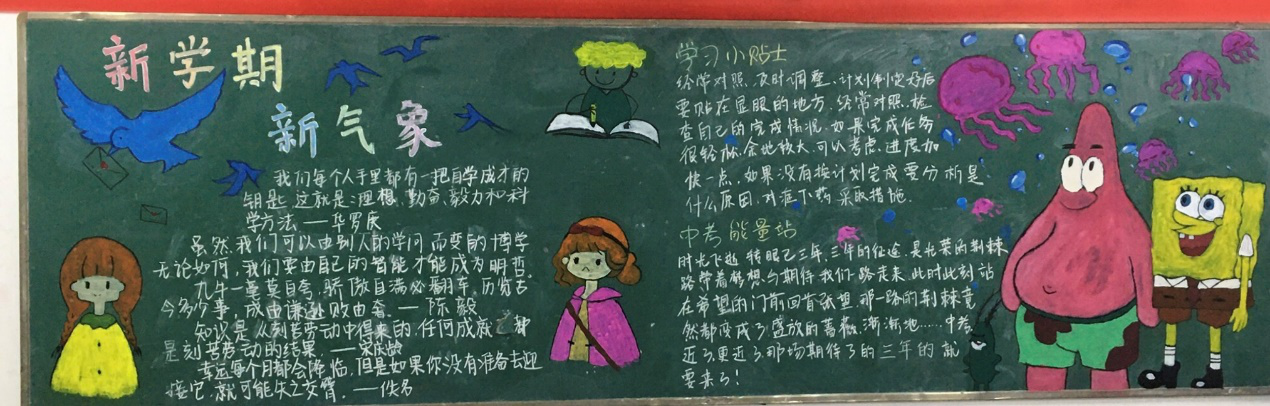 新学期
新气象
我们每个人手里都有一把自学成才的
钥匙,这就是:理想、勤奋、毅力和科
学方法.——华罗庚
虽然我们可以由别人的学问而变的博学
无论如何,我们要由自己的智能才能成为明哲.
九牛一毫莫自夸,骄傲自满必翻车,历览古
今多少事,成由谦逊败由奢.——陈毅
知识是从刻苦劳动中得来的,任何成就都
是刻苦劳动的结果.——宋庆龄
幸运每个月都会降临,但是如果你没有准备去迎
接它,就可能失之交臂.——佚名
学习小贴士
经常对照、及时调整、计划制定好后
要贴在显眼的地方,经常对照、检
查自己的完成情况,如果完成任务
很轻松,余地较大,可以考虑,进度加
快一点,如果没有按计划完成要分析是
什么原因,对症下药,采取措施.
中考能量站
时光飞逝,转眼已三年,三年的征途,是光荣的荆棘
路带着梦想与期待我们一路走来,此时此刻站
在希望的门前回首张望,那一路的荆棘竟
然都变成了盛放的蔷薇,渐渐地……中考
近了更近了那场期待了的三年的就
要来了!